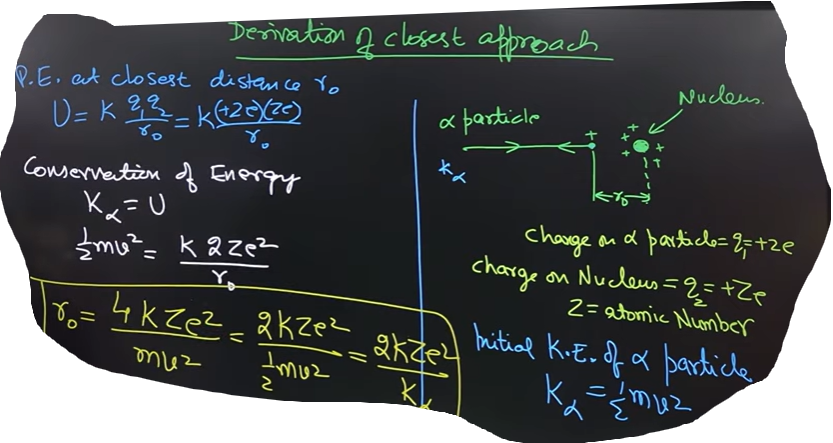 Derivation of closest approach
P.E. at closest distance r₀
U = K q₁q₂/r₀ = K(+2e)(Ze)/r₀
Conservation of Energy
K_α = U
½mv² = K 2Ze²/r₀
r₀ = 4KZe²/mv² = 2KZe²/½mv² = 2KZe²/K_α
α particle
K_α
Nucleus.
r₀
Charge on α particle = q₁ = +2e
Charge on Nucleus = q₂ = +Ze
Z = atomic Number
Initial K.E. of α particle
K_α = ½mv²